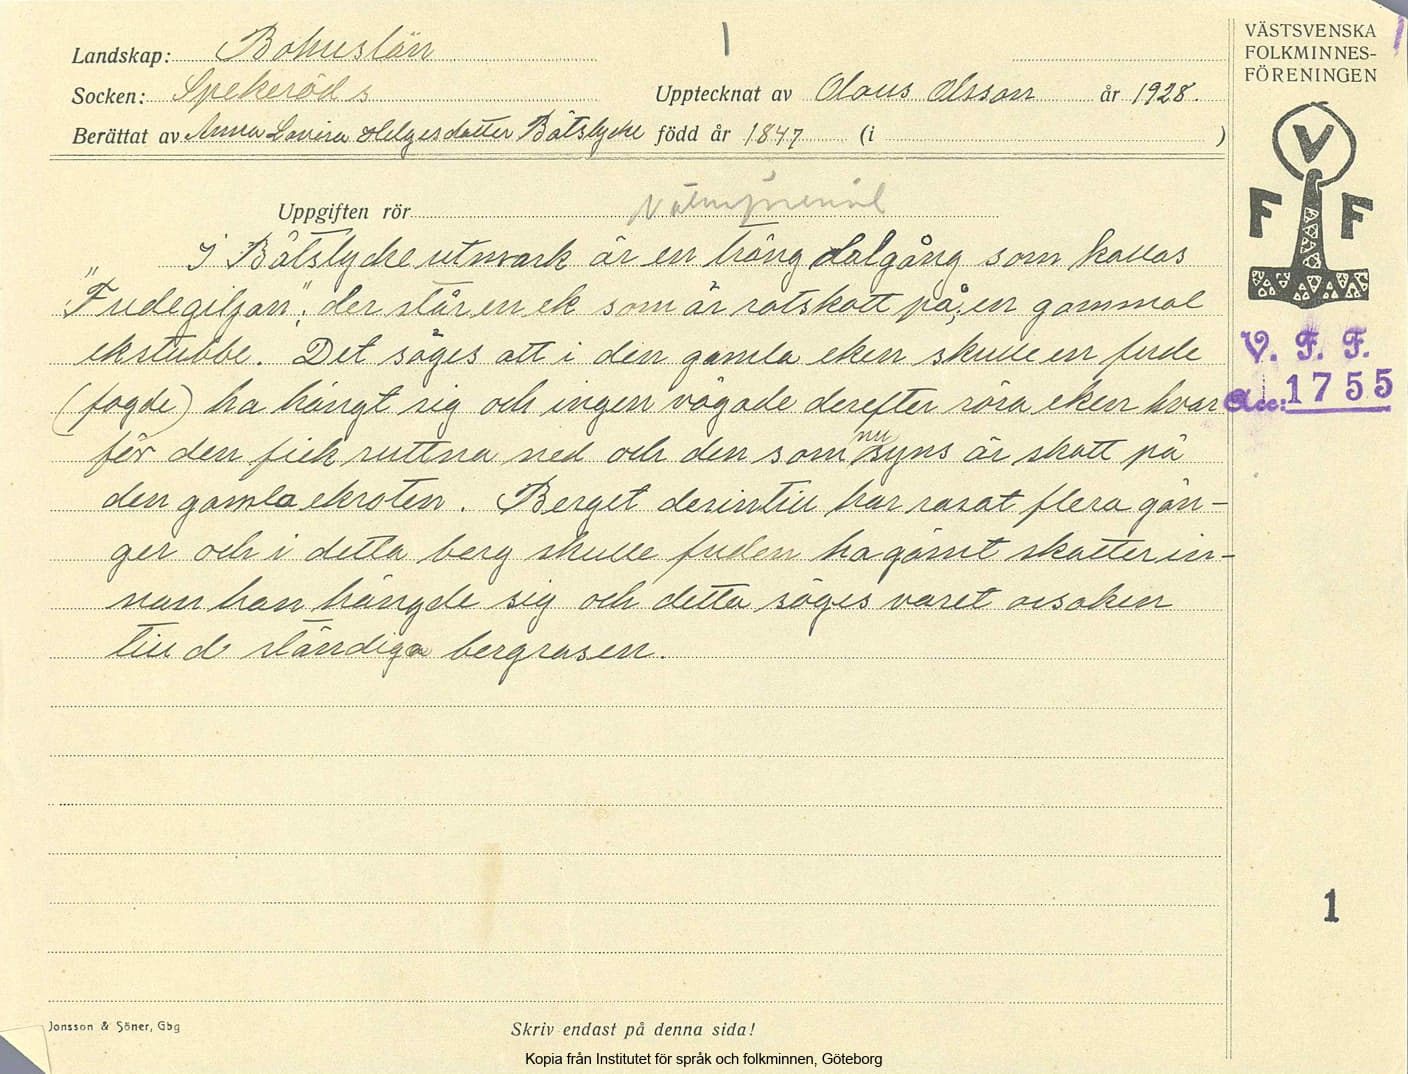 Landskap: Bohuslän
Socken: Spekeröds
Upptecknat av Claus Olsson år 1928.
Berättat av Anna Lovisa Helgesdotter Båtslycke född år 1847 (i )
Uppgiften rör
I Båtslycke utmark är en trång dalgång som kallas
"Fudegiljan"; der står en ek som är rotskott på en gammal
ekstubbe. Det säges att i den gamla eken skulle en fude
(fogde) ha hängt sig och ingen vågade derefter röra eken hvar
för den fick ruttna ned och den som nu syns är skott på
den gamla ekroten. Berget derintill har rasat flera gån-
ger och i detta berg skulle fuden ha gömt skatter in-
nan han hängde sig och detta säges varet orsaken
till de ständiga bergrasen.
Jonsson & Söner, Gbg
Skriv endast på denna sida!
Kopia från Institutet för språk och folkminnen, Göteborg
VÄSTSVENSKA
FOLKMINNES-
FÖRENINGEN
V
F F
V. F. F.
Acc: 1755
1